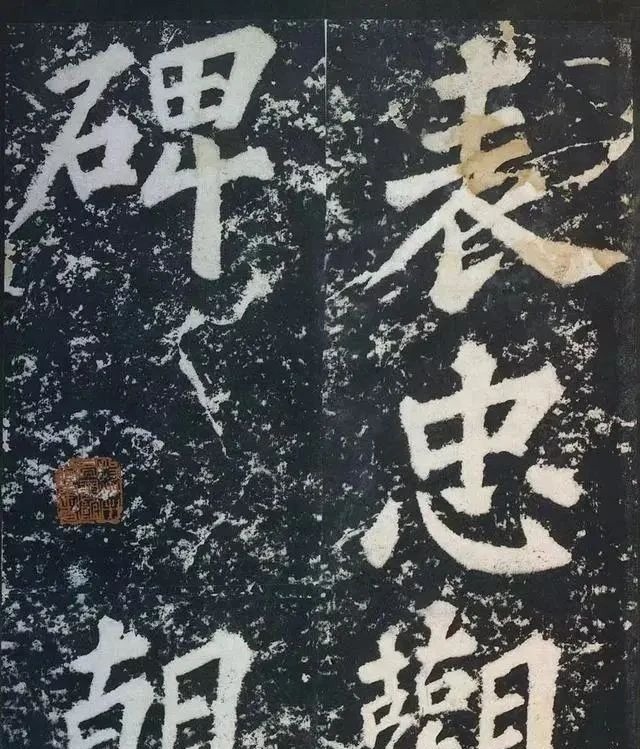 表忠觀
碑朝